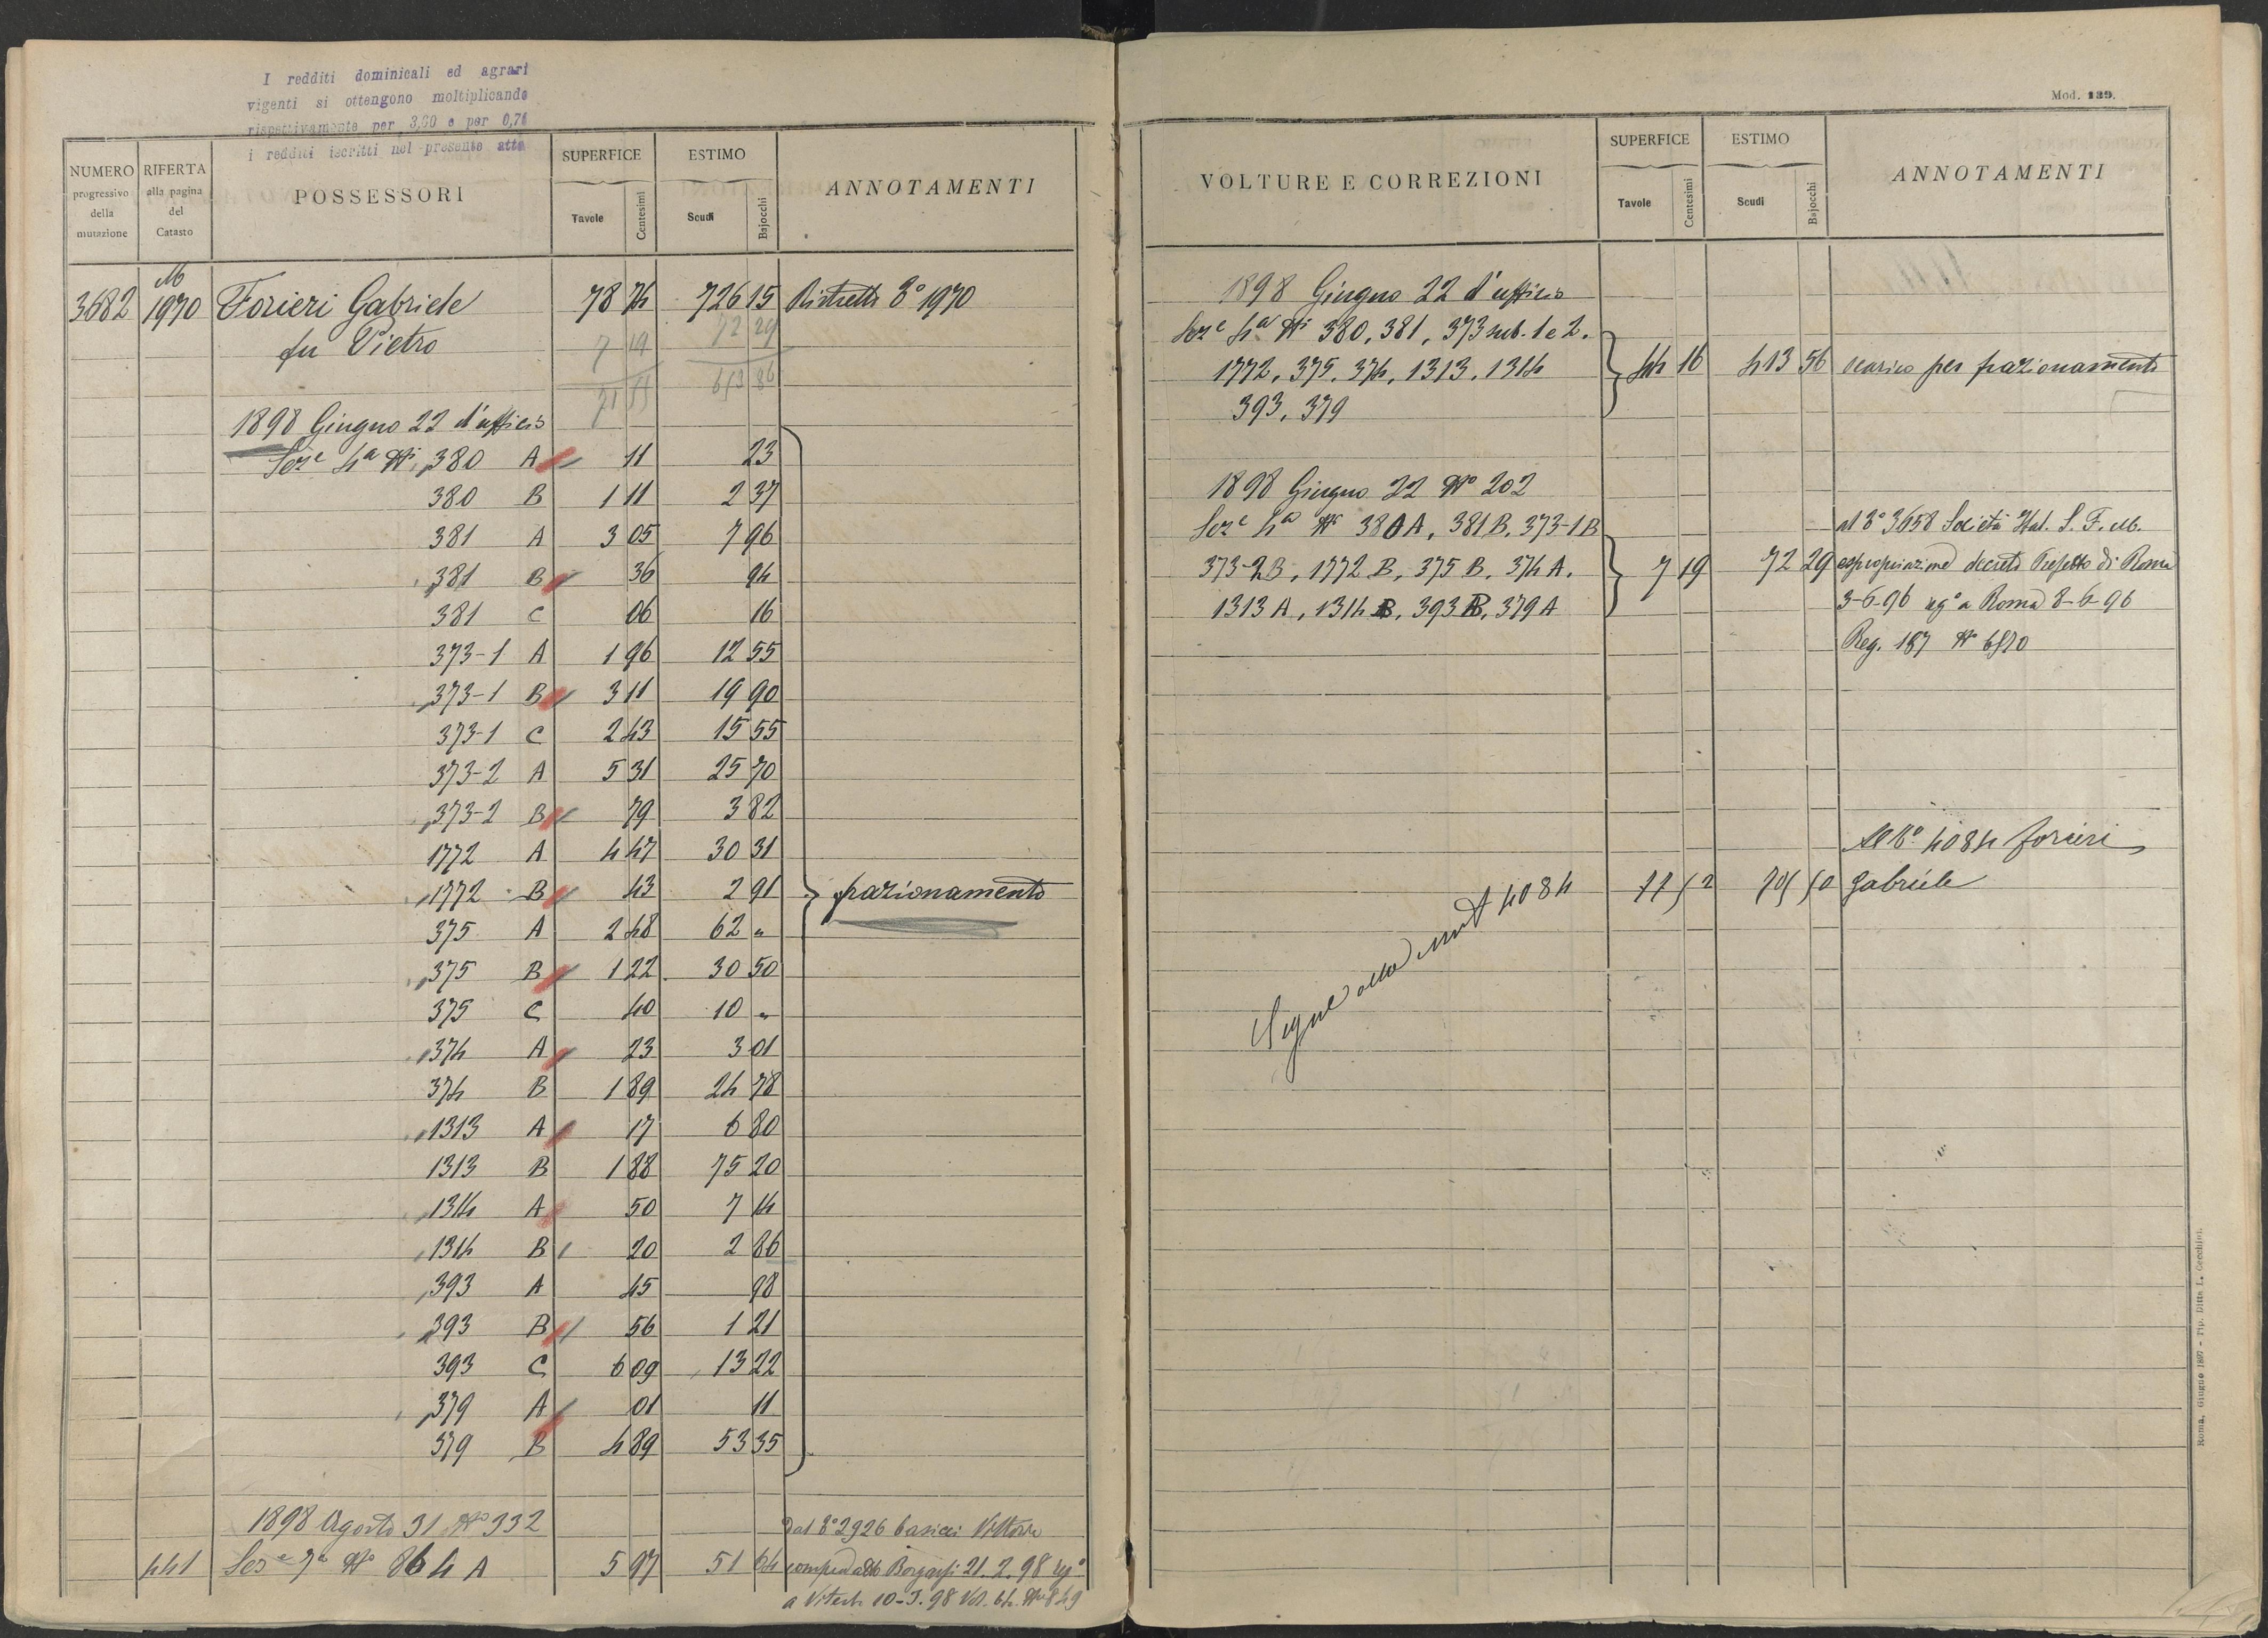 I redditi dominicali ed agrari
vigenti si ottengono moltiplicando
rispettivamente per 3,60 e per 0,76
i redditi iscritti nel presente atto
NUMERO progressivo della mutazione
RIFERTA alla pagina del Catasto
POSSESSORI
SUPERFICE
Tavole Centesimi
ESTIMO
Scudi Bajocchi
ANNOTAMENTI
3682 M 1970 Forieri Gabriele 78 74 726 15 Ristretto 1970
fu Pietro 7 19 72 29
71 55 653 86
1898 Giugno 22 d'ufficio
Sez.e 4a Ni 380 A 11 23
380 B 1 11 2 37
381 A 3 05 7 96
381 B 36 94
381 C 06 16
373-1 A 1 96 12 55
373-1 B 3 11 19 90
373-1 C 2 43 15 55
373-2 A 5 31 25 70
373-2 B 79 3 82
1772 A 4 47 30 31
1772 B 43 2 91 frazionamento
375 A 2 48 62 "
375 B 1 22 30 50
375 C 40 10 "
374 A 23 3 01
374 B 1 89 24 78
1313 A 17 6 80
1313 B 1 88 75 20
1314 A 50 7 14
1314 B 20 2 86
393 A 45 98
393 B 56 1 21
393 C 6 09 13 22
379 A 01 11
379 B 4 89 53 35
1898 Agosto 31 No 332 Dal 2926 Vittorio
441 Sez.e 7a No 864 A 5 97 51 64 21.2.98 reg°
a Viterbo 10-3.98 Vol. 64. No 849
Mod. 139.
VOLTURE E CORREZIONI
SUPERFICE
Tavole Centesimi
ESTIMO
Scudi Bajocchi
ANNOTAMENTI
1898 Giugno 22 d'ufficio
Sez.e 4a Ni 380, 381, 373 sub. 1 e 2.
1772, 375, 374, 1313, 1314 44 16 413 56 scarico per frazionamento
393, 379
1898 Giugno 22 No 202
Sez.e 4a Ni 380 A, 381 B, 373-1 B al 3658 Società Ital. S. F. M.
373-2 B, 1772 B, 375 B, 374 A. 7 19 72 29 espropriazione decreto Prefetto di Roma
1313 A, 1314 B, 393 B, 379 A 3-6-96 reg° a Roma 8-6-96
Reg. 187 No
Al 4084 Forieri
Segue alla 4084 Gabriele
Roma, Giugno 1897 - Tip. Ditta L. Cecchini.